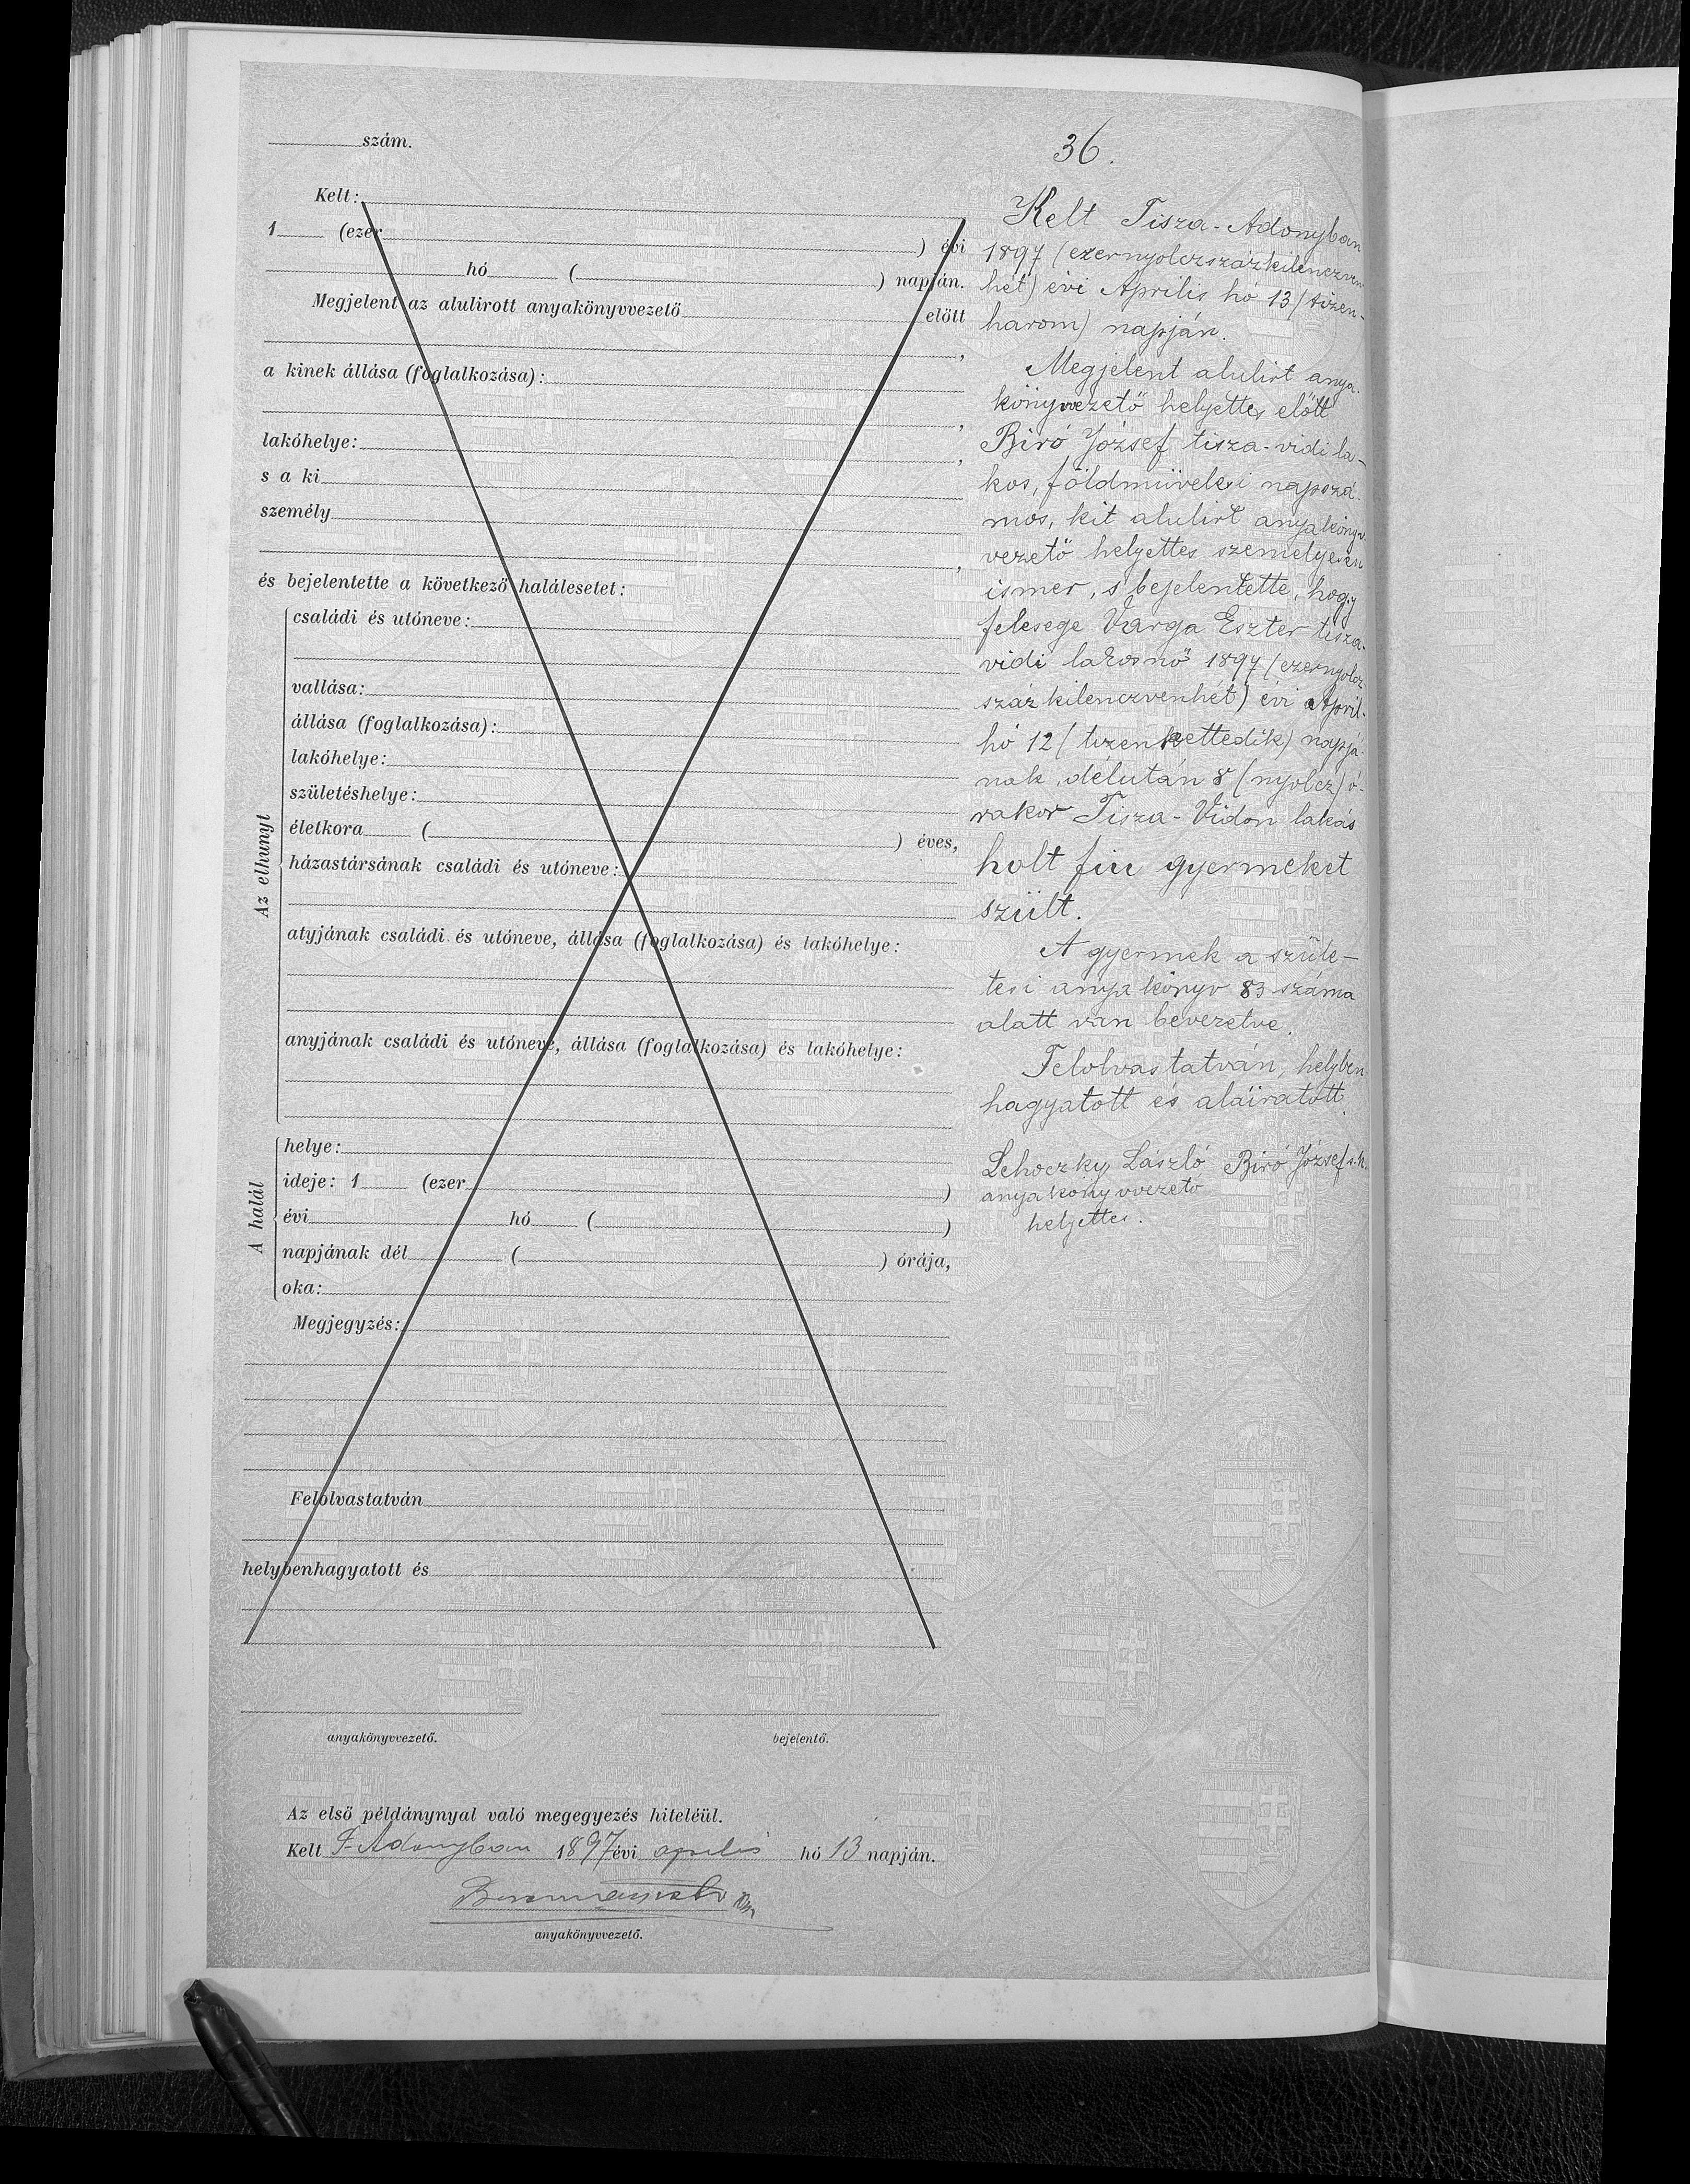 szám.
Kelt:
1 (ezer ) évi
hó ( ) napján.
Megjelent az alulirott anyakönyvvezető előtt
,
a kinek állása (foglalkozása):
,
lakóhelye: ,
s a ki
személy
,
és bejelentette a következő halálesetet:
Az elhunyt
családi és utóneve:
vallása:
állása (foglalkozása):
lakóhelye:
születéshelye:
életkora ( ) éves,
házastársának családi és utóneve:
atyjának családi és utóneve, állása (foglalkozása) és lakóhelye:
anyjának családi és utóneve, állása (foglalkozása) és lakóhelye:
A halál
helye:
ideje: 1 (ezer )
évi hó ( )
napjának dél ( ) órája,
oka:
Megjegyzés:
Felolvastatván
helybenhagyatott és
anyakönyvvezető. bejelentő.
Az első példánynyal való megegyezés hiteléül.
Kelt T-Adonyban 1897 évi aprilis hó 13 napján.
anyakönyvvezető.
36.
Kelt Tisza-Adonyban
1897 (ezernyolczszázkilenczven
hét) évi Április hó 13 (tizen-
harom) napján.
Megjelent alulirt anya-
könyvvezető helyettes előtt
Biró József tisza-vidi la-
kos, földmüvelesi napszá-
mos, kit alulirt anyakönyv-
vezető helyettes személyesen
ismer, s bejelentette, hogy
felesege Varga Eszter tisza-
vidi lakosnő 1897 (ezernyolcz
száz kilenczvenhét) évi April-
hó 12 (tizenkettedik) napjá-
nak délután 8 (nyolcz) ó-
rakor Tisza-Vidon lakás
holt fiu gyermeket
szült.
A gyermek a szüle-
tesi anyakönyv 83 száma
alatt van bevezetve.
Felolvastatván, helyben
hagyatott és aláiratott.
Lehoczky László Biró József s.k.
anyakönyvvezető
helyettes.